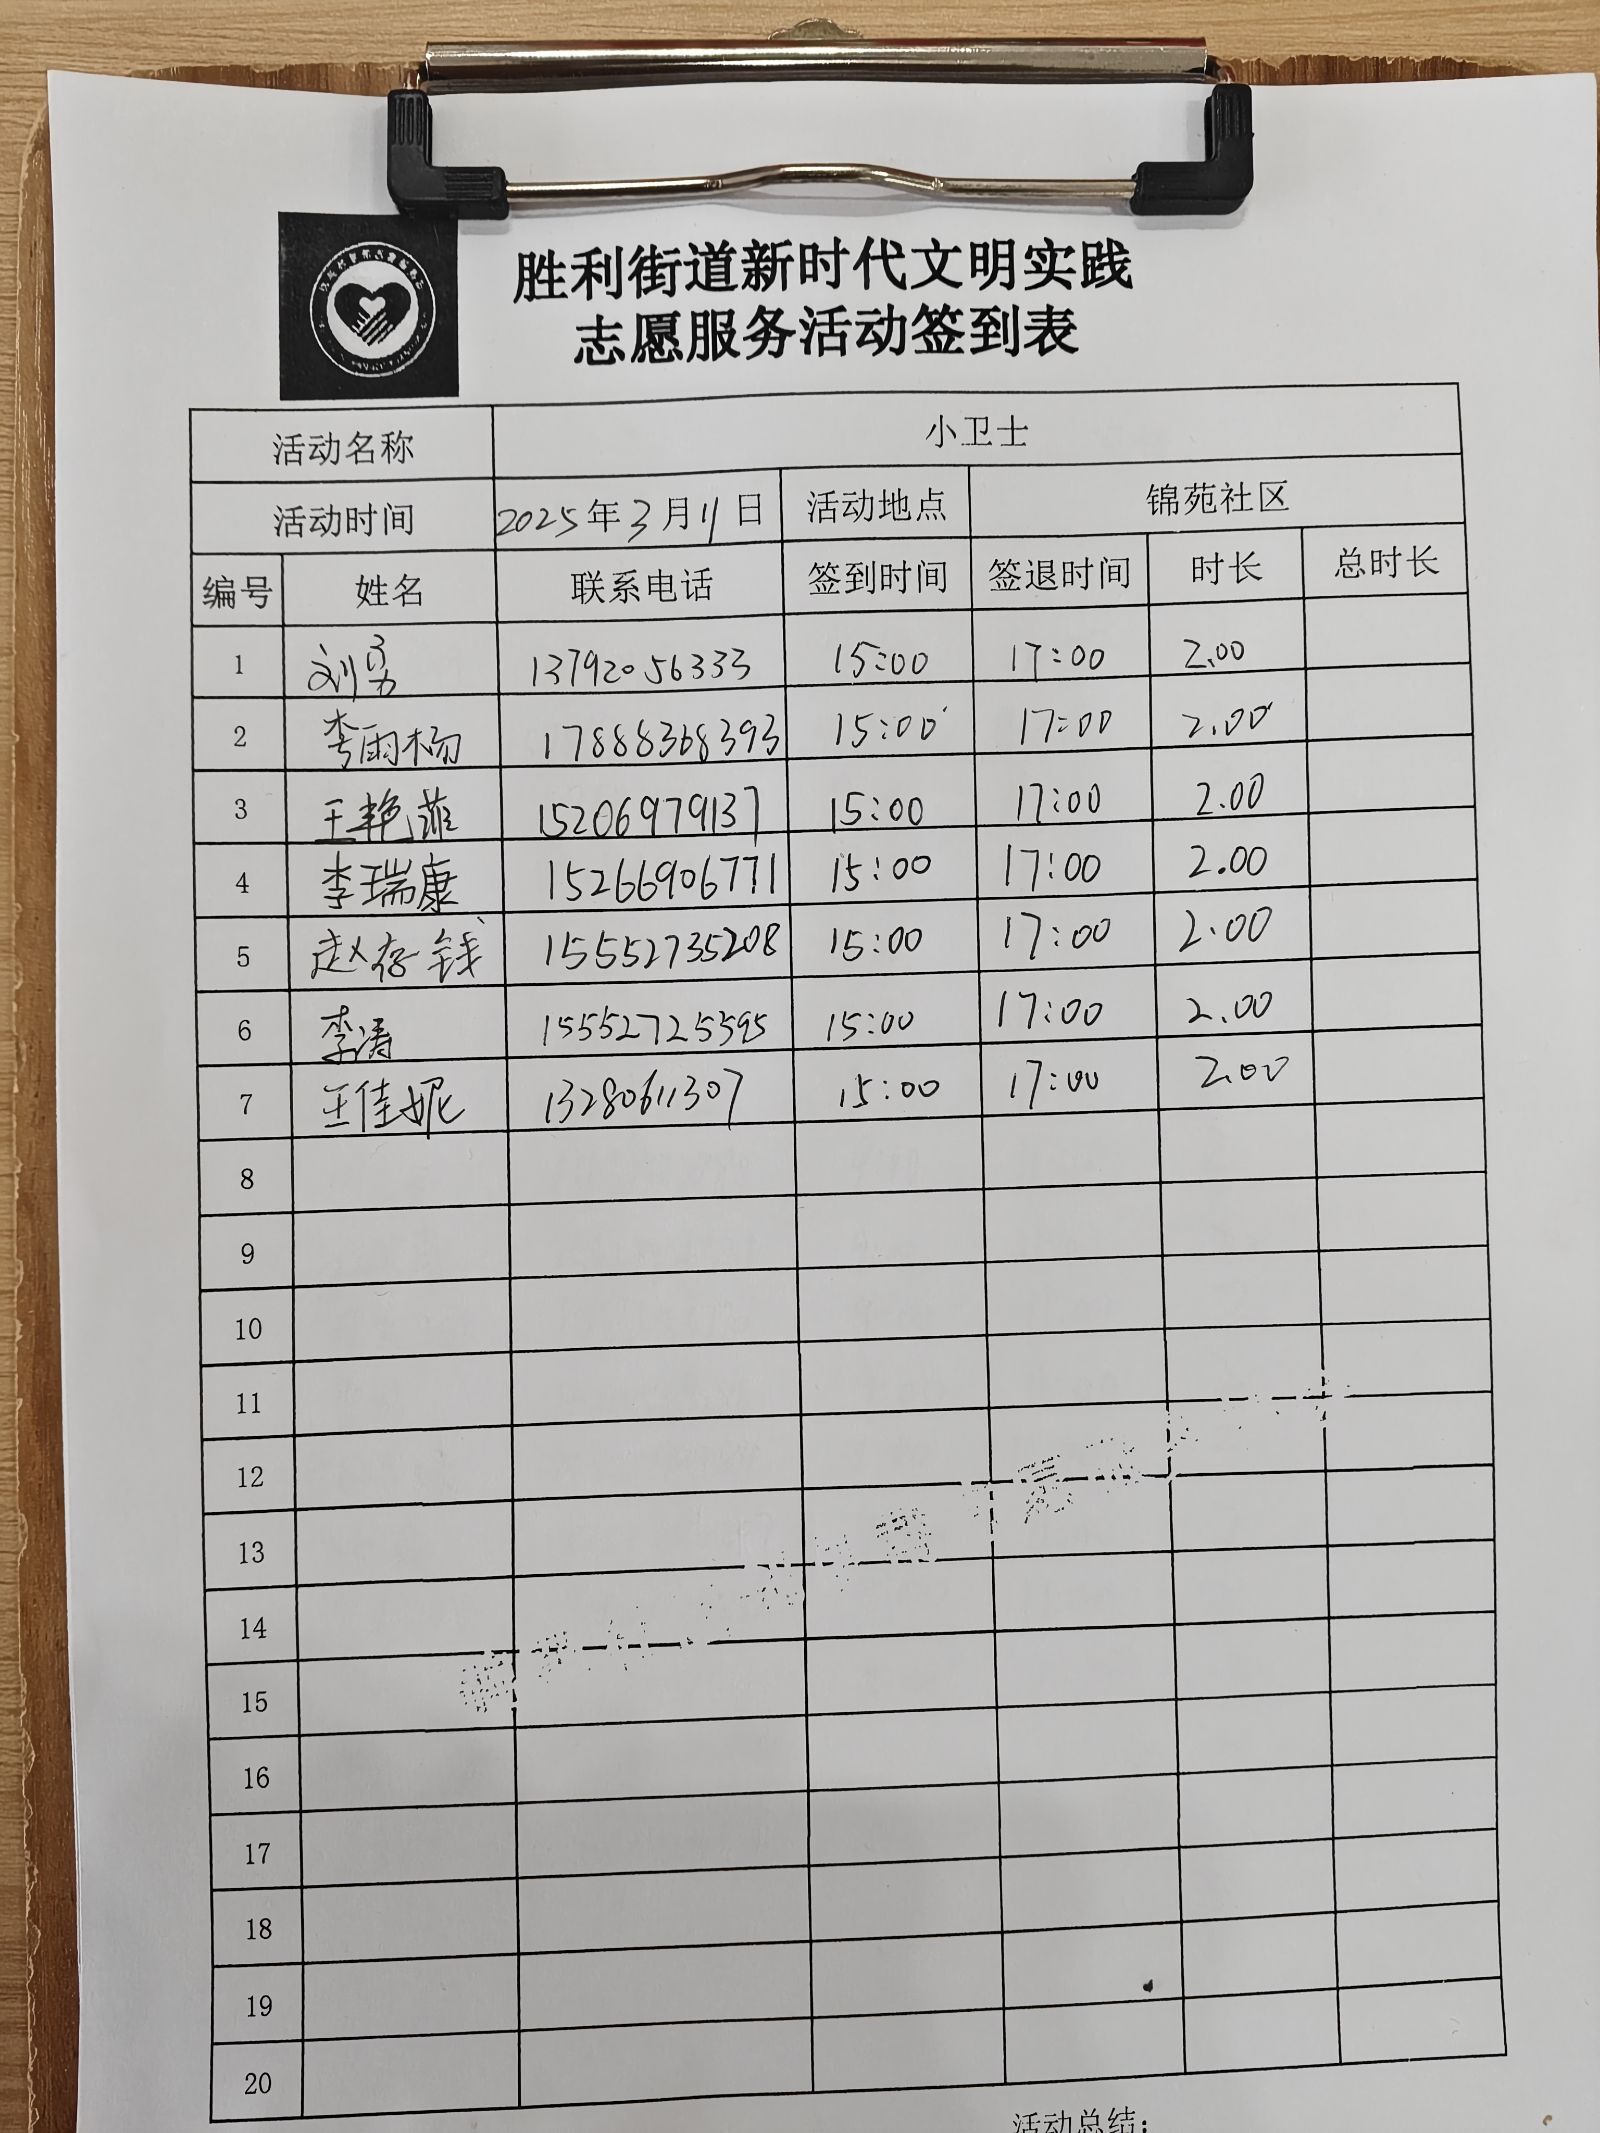 胜利街道新时代文明实践
志愿服务活动签到表
活动名称 小卫士
活动时间 2025年3月11日 活动地点 锦苑社区
编号 姓名 联系电话 签到时间 签退时间 时长 总时长
1 刘勇 13792056333 15:00 17:00 2.00
2 李雨杨 17888368393 15:00 17:00 2.00
3 王艳菲 15206979137 15:00 17:00 2.00
4 李瑞康 15266906771 15:00 17:00 2.00
5 赵存钱 15552735208 15:00 17:00 2.00
6 李涛 15552725595 15:00 17:00 2.00
7 王佳妮 13280611307 15:00 17:00 2.00
8
9
10
11
12
13
14
15
16
17
18
19
20
活动总结: